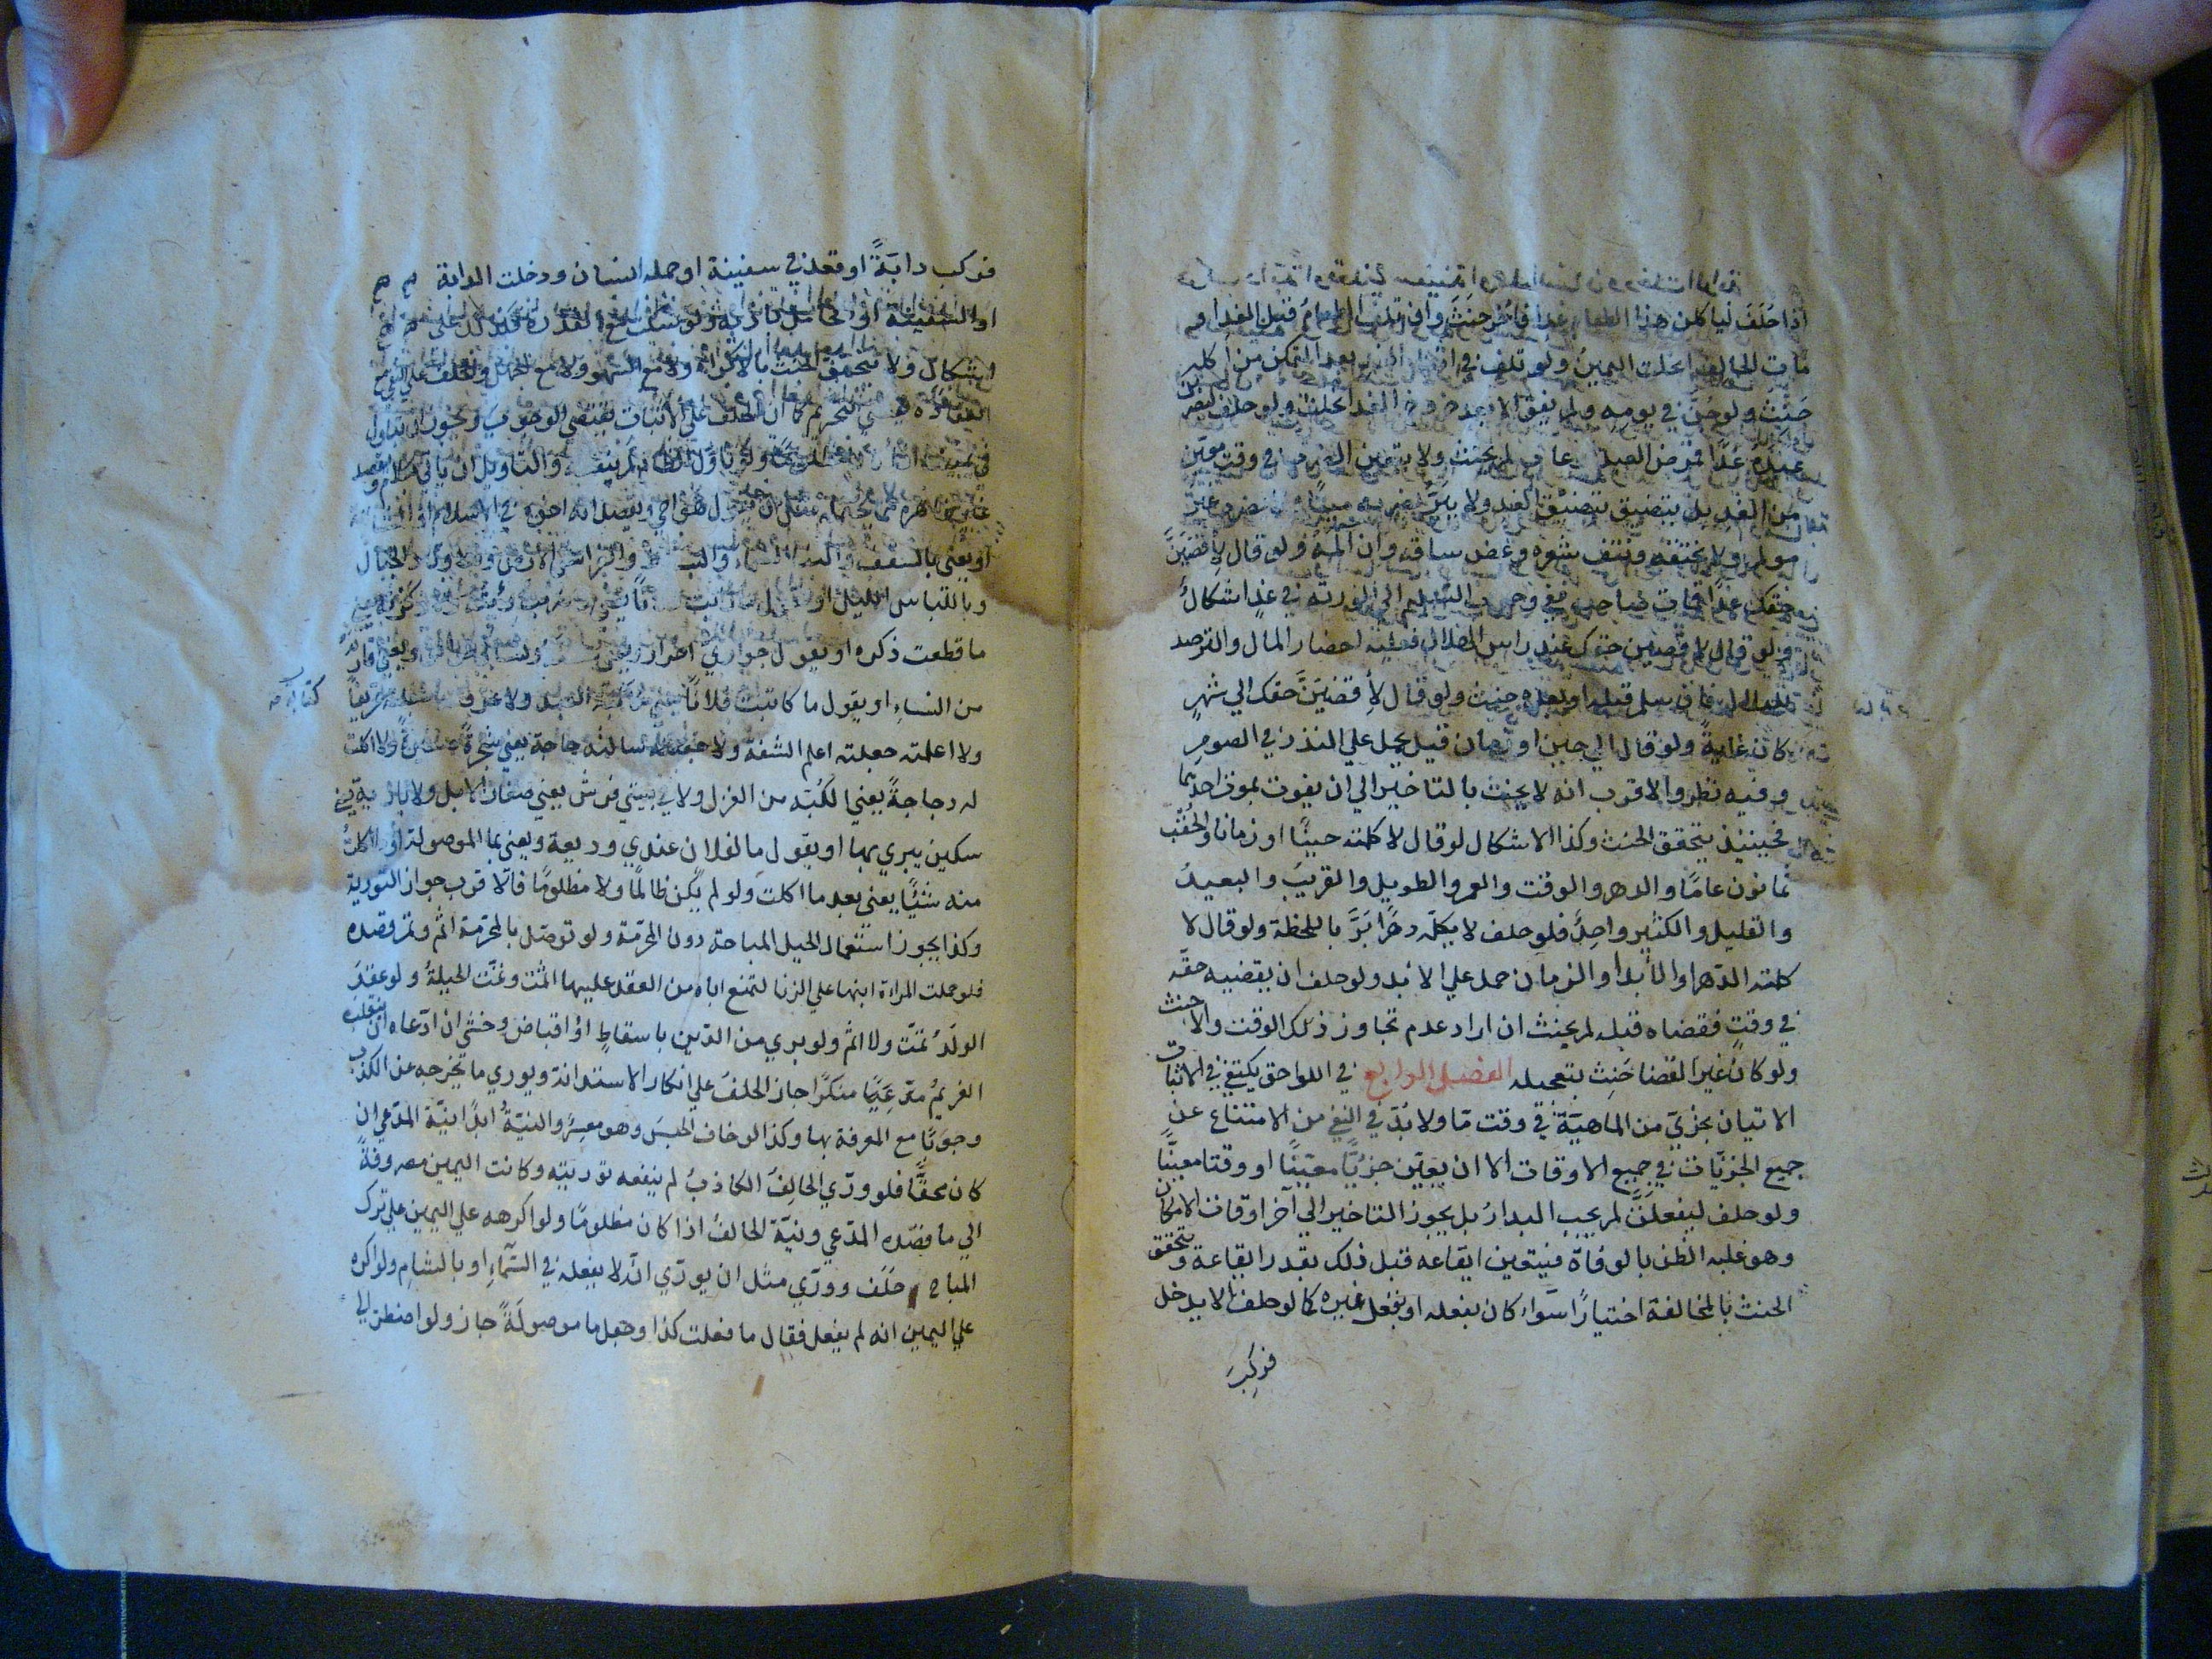 اذا حلف لياكلن هذا الطعام غدا فاخر حنث وان تلف الطعام قبل الغد او
مات الحالف انحلت اليمين ولو تلف في اثناء الغد بعد التمكن من اكله
حنث ولو جنّ في يومه ولم يفق الا بعد خروج الغد انحلت ولو حلف ليضربن
عبده غدًا فمرض العبد لم يحنث ولا يتعين الضرب في وقت معين
من الغد بل يتضيق بتضيق الغد ولا يبرّ بضربه ميتًا بضرب غير
مولم ولا بخنقه ونتف شعره وعض ساقه وان المه ولو قال لاقضينّ
حقك غدًا فمات صاحبه ففي وجوب التسليم الي الورثة في غدٍ اشكالٌ
ولو قال لاقضين حقك عند راس الهلال فعليه احضار المال والترصد
للهلال فان سلم قبله او بعده حنث ولو قال لاقضينّ حقك الي شهرٍ
كان غايةً ولو قال الي حين او زمان قيل يحمل علي النذر في الصومِ
وفيه نظر والاقرب انه لا يحنث بالتاخير الي ان يفوت بموت احدهما
فحينئذ يتحقق الحنث وكذا الاشكال لو قال لا كلمته حينًا او زمانا والحقب
ثمانون عامًا والدهر والوقت والعمر والطويل والقريب والبعيدُ
والقليل والكثير واحدٌ فلو حلف لا يكلّمه دهرًا برَّ باللحظة ولو قال لا
كلمته الدهر او الابد او الزمان حمل علي الابد ولو حلف ان يقضيه حقّه
في وقتٍ فقضاه قبله لم يحنث ان اراد عدم تجاوز ذلك الوقت والا حنث
ولو كان غير القضا حنث بتعجيله الفصل الرابع في اللواحق يكتفي في الاثبات
الاتيان بجزئي من الماهيّة في وقت مّا ولا بدّ في النفي من الامتناع عن
جميع الجزئيّات في جميع الاوقات الا ان يعيّن جزئيًّا معيّنًا او وقتا معينًا
ولو حلف ليفعلنّ لم يجب البدارُ بل يجوز التاخير الي آخر اوقات الامكان
وهو غلبه الظن بالوفاة فيتعين ايقاعه قبل ذلك بقدر ايقاعه ويتحقق
الحنث بالمخالفة اختيارًا سواء كان بفعله او بفعل غيره كما لو حلف لا يدخل
فركب
فركب دابّةً او قعد في سفينة او حمله انسان ودخلت الدابة
او السفينة او الحامل باذنه ولو سكت مع القدرة فكذلك علي
اشكال ولا يتحقق الحنث بالاكراه ولا مع السهو ولا مع الجهل والحلف علي النفي مع
انعقاده يقتضي التحريم كما ان الحلف علي الاثبات يقتضي الوجوب ويجوز ان يتاول
في يمينه اذا ولو تاوّل الظالم لم ينفعه والتاويل ان ياتي بكلام ويقصد
غير ظاهره مما يحتمله مثل ان يقول هو اخي ويقصد انه اخوه في الاسلام او
او يعني بالسقف والبناء السماء وبالبساط والفراش الارض وبالاوتاد الجبال
وباللباس الليل او يقول ما رايت
ما قطعت ذكره او يقول جواري احرار ويعني سفنه
من النساء او يقول ما كاتبت فلانًا يعني مكاتبة العبد ولا عرفته جعلته عريفًا
كتابه صه
ولا اعلمته جعلته اعلم الشفة ولا سالته حاجة يعني شجرةً صغيرةً ولا اكلت
له دجاجةً يعني الكبّه من الغزل ولا في بيتي فرش يعني صغار الابل ولا بارية يعني
سكين يبري بها او يقول ما لفلان عندي وديعة ويعني بما الموصولة او ما اكلتُ
منه شيًا يعني بعد ما اكلت ولو لم يكن ظالمًا ولا مظلومًا فالاقرب جواز التورية
وكذا يجوز استعمال الحيل المباحة دون المحرّمة ولو توصّل بالمحرّمة اثم وتمّ قصده
فلو حملت المراة ابنها علي الزنا لتمنع اباه من العقد عليها اثمت وتمّت الحيلةُ ولو عقدَ
الولدُ تمّت ولا اثم ولو بري من الدّين باسقاطٍ او اقباض وخشي ان ادّعاه ان ينقلب
الغريمُ مدّعيًا منكرًا جاز الحلف علي انكار الاستدانة ويوري ما يخرجه عن الكذب
وجوبًا مع المعرفة بها وكذا لو خاف الحبسَ وهو معسرٌ والنيّةُ ابدًا نيّة المدّعي ان
كان محقًّا فلو ورّي الحالفُ الكاذبُ لم ينفعه توريته وكانت اليمين مصروفةً
الي ما قصده المدّعي ونيّة الحالف اذا كان مظلومًا ولو اكرهه علي اليمين علي ترك
المباح حلَف وورّي مثل ان يورّي انّه لا يفعله في السّماءِ او بالشامِ ولو اكره
علي اليمين انه لم يفعل فقال ما فعلت كذا وجعل ما موصولةً جاز ولو اضطر الي